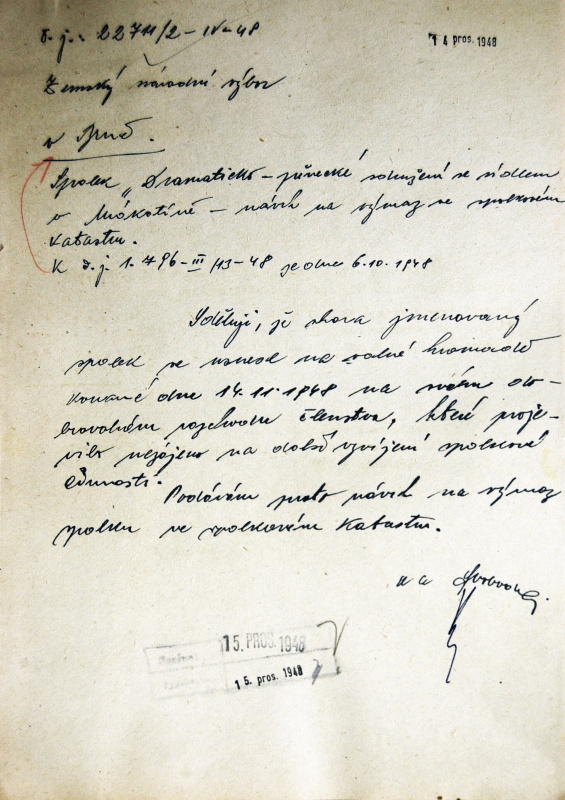 č. j.: 22711/2-IV-48
14 pros. 1948
Zemský národní výbor
v Brně.
Spolek „Dramaticko-pěvecké sdružení se sídlem
v Mrákotíně - návrh na výmaz ve spolkovém
katastru.
K č. j. 1.796-III/13-48 ze dne 6.10.1948
Sděluji, že shora jmenovaný
spolek se usnesl na valné hromadě
konané dne 14.11.1948 na svém do-
brovolném rozchodu členstva, které proje-
vilo nezájem na další vyvíjení spolkové
činnosti.
Podávám proto návrh na výmaz
spolku ve spolkovém katastru.
15. PROS. 1948
15. pros. 1948